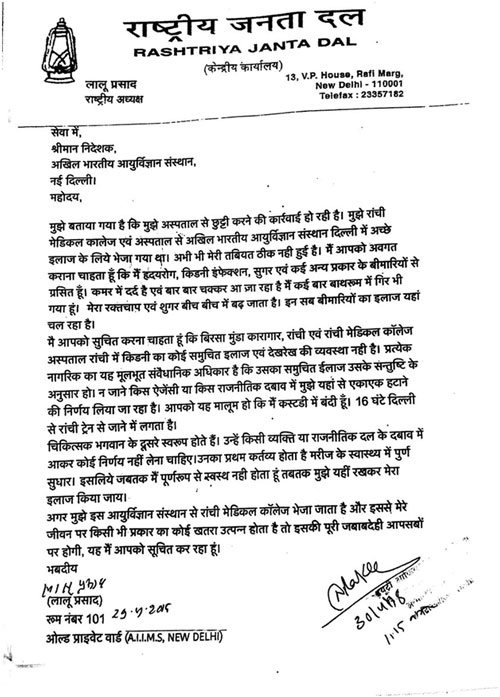 राष्ट्रीय जनता दल
RASHTRIYA JANTA DAL
(केन्द्रीय कार्यालय)
13, V.P. House, Rafi Marg,
New Delhi - 110001
Telefax : 23357182
लालू प्रसाद
राष्ट्रीय अध्यक्ष
सेवा में,
श्रीमान निदेशक,
अखिल भारतीय आयुर्विज्ञान संस्थान,
नई दिल्ली।
महोदय,
मुझे बताया गया है कि मुझे अस्पताल से छुट्टी करने की कार्रवाई हो रही है। मुझे रांची
मेडिकल कालेज एवं अस्पताल से अखिल भारतीय आयुर्विज्ञान संस्थान दिल्ली में अच्छे
इलाज के लिये भेजा गया था। अभी भी मेरी तबियत ठीक नही हुई है। मैं आपको अवगत
कराना चाहता हूँ कि मैं ह्रदयरोग, किडनी इंफेक्शन, सुगर एवं कई अन्य प्रकार के बीमारियों से
ग्रसित हूँ। कमर में दर्द है एवं बार बार चक्कर आ जा रहा है मैं कई बार बाथरूम में गिर भी
गया हूं। मेरा रक्तचाप एवं शुगर बीच बीच में बढ़ जाता है। इन सब बीमारियों का इलाज यहां
चल रहा है।
मै आपको सुचित करना चाहता हूं कि बिरसा मुंडा कारागार, रांची एवं रांची मेडिकल कॉलेज
अस्पताल रांची में किडनी का कोई समुचित इलाज एवं देखरेख की व्यवस्था नही है। प्रत्येक
नागरिक का यह मूलभूत संवैधानिक अधिकार है कि उसका समुचित ईलाज उसके संन्तुष्टि के
अनुसार हो। न जाने किस ऐजेंसी या किस राजनीतिक दबाव में मुझे यहां से एकाएक हटाने
की निर्णय लिया जा रहा है। आपको यह मालूम हो कि मैं कस्टडी में बंदी हूँ। 16 घंटे दिल्ली
से रांची ट्रेन से जाने में लगता है।
चिकित्सक भगवान के दूसरे स्वरूप होते हैं। उन्हें किसी व्यक्ति या राजनितिक दल के दबाव में
आकर कोई निर्णय नहीं लेना चाहिए।उनका प्रथम कर्तव्य होता है मरीज के स्वास्थ्य में पुर्ण
सुधार। इसलिये जबतक मैं पूर्णरूप से स्वस्थ नही होता हूं तबतक मुझे यहीं रखकर मेरा
इलाज किया जाय।
अगर मुझे इस आयुर्विज्ञान संस्थान से रांची मेडिकल कॉलेज भेजा जाता है और इससे मेरे
जीवन पर किसी भी प्रकार का कोई खतरा उत्पन्न होता है तो इसकी पूरी जबाबदेही आपसबों
पर होगी, यह मैं आपको सूचित कर रहा हूं।
भवदीय
(लालू प्रसाद)
रूम नंबर 101
ओल्ड प्राइवेट वार्ड (A.I.I.M.S, NEW DELHI)
30/4/18